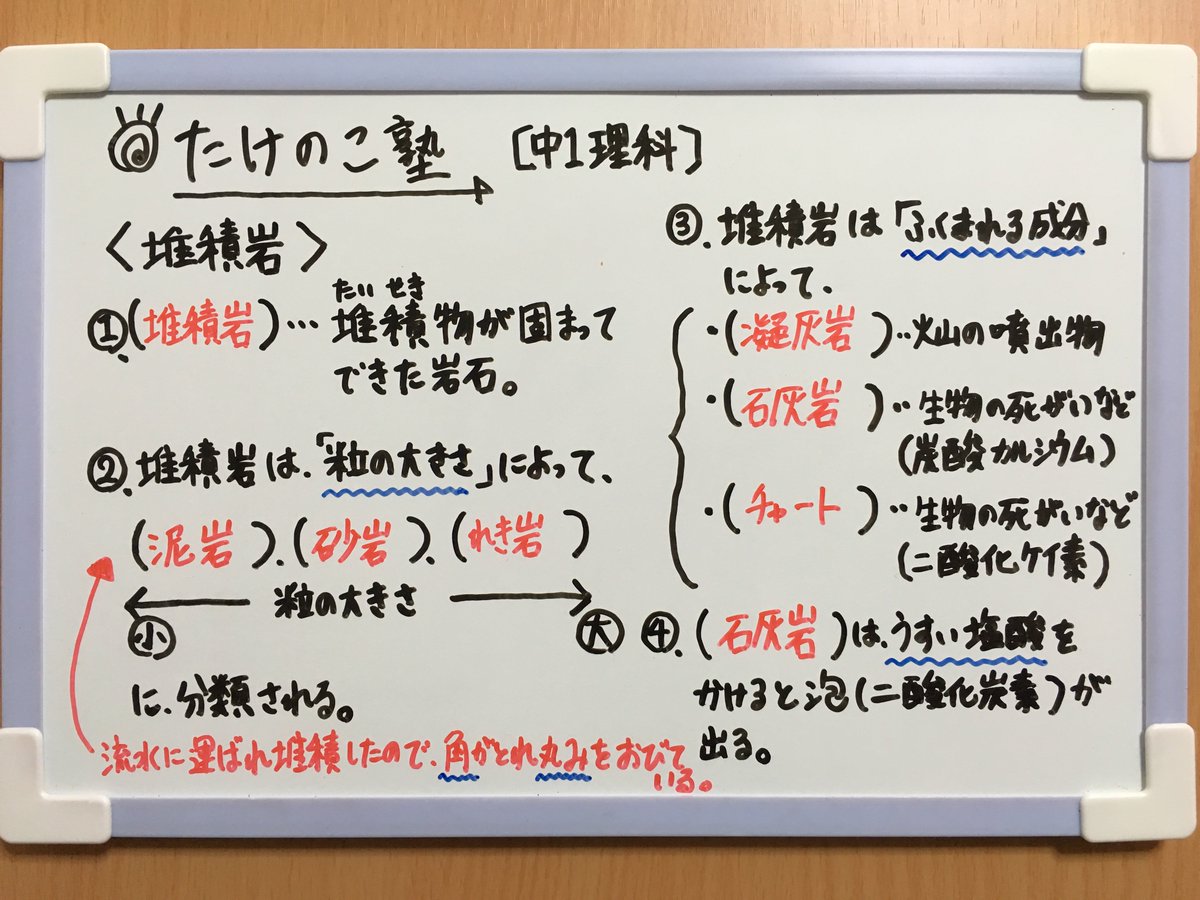 たけのこ塾 [中1理科]
〈堆積岩〉
たい せき
①.(堆積岩)…堆積物が固まって
できた岩石。
②.堆積岩は、「粒の大きさ」によって、
(泥岩)、(砂岩)、(れき岩)
粒の大きさ
小 大
に、分類される。
流水に運ばれ堆積したので、角がとれ丸みをおびて
いる。
③.堆積岩は「ふくまれる成分」
によって、
・(凝灰岩)‥火山の噴出物
・(石灰岩)‥生物の死がいなど
(炭酸カルシウム)
・(チャート)‥生物の死がいなど
(二酸化ケイ素)
④.(石灰岩)は、うすい塩酸を
かけると泡(二酸化炭素)が
出る。